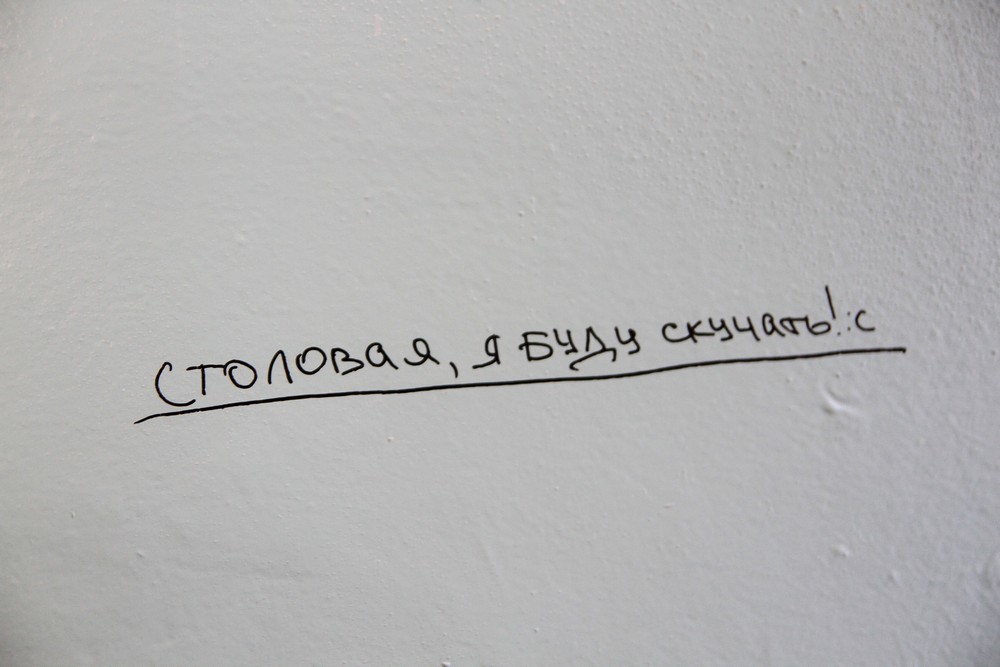 Столовая, я буду скучать! :с